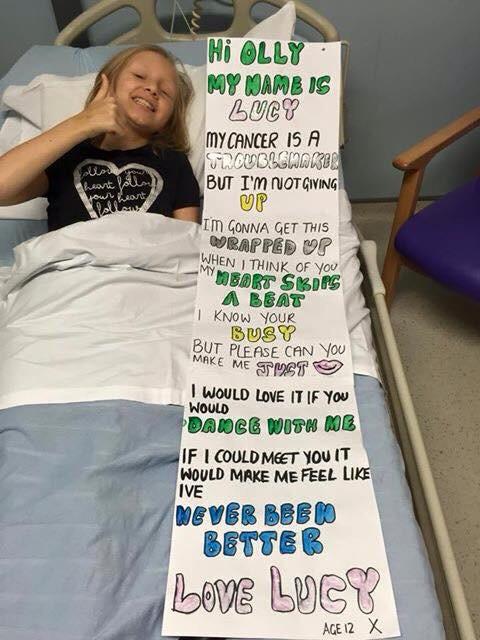 Hi OLLY
MY NAME IS
LUCY
MY CANCER IS A
TROUBLEMAKER
BUT I'M NOT GIVING
UP
I'M GONNA GET THIS
WRAPPED UP
WHEN I THINK OF YOU
MY HEART SKIPS
A BEAT
I KNOW YOUR
BUSY
BUT PLEASE CAN YOU
MAKE ME JUST
I WOULD LOVE IT IF YOU
WOULD
DANCE WITH ME
IF I COULD MEET YOU IT
WOULD MAKE ME FEEL LIKE
IVE
NEVER BEEN
BETTER
LOVE LUCY
AGE 12 X
follow your
heart follow
your heart
follow